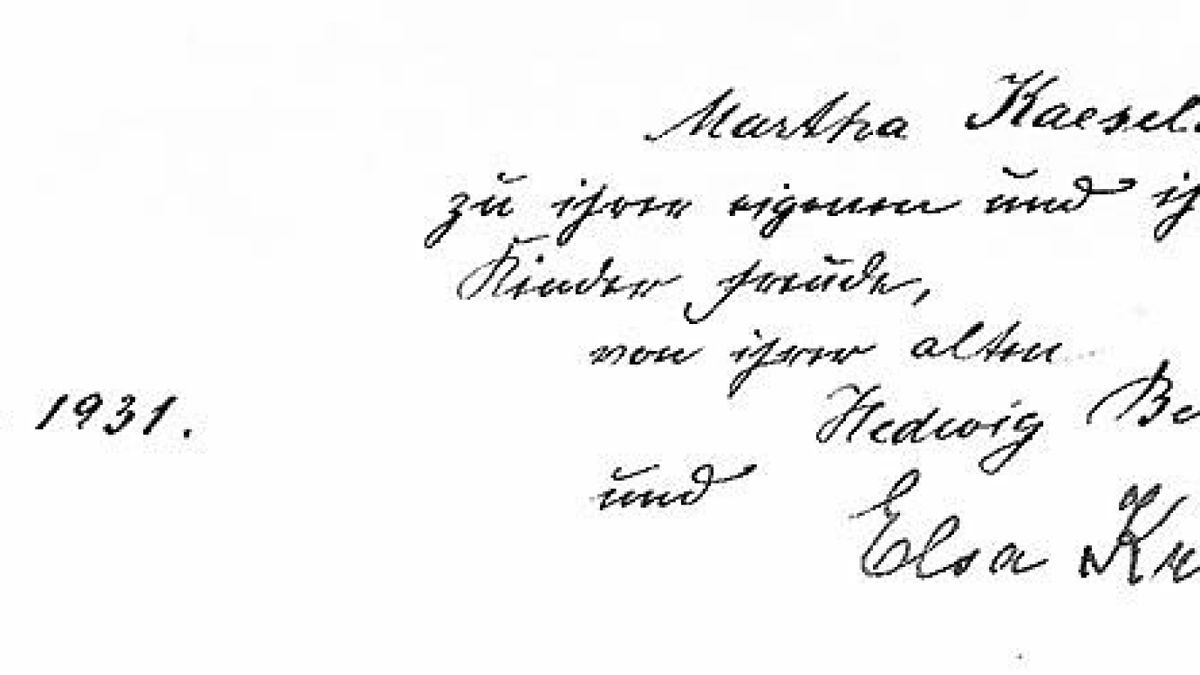 Martha Kaesel
zu ihrer eigenen und ih
Kinder Freude,
von ihrer alten
Hedwig Be
1931.
und Elsa Kr